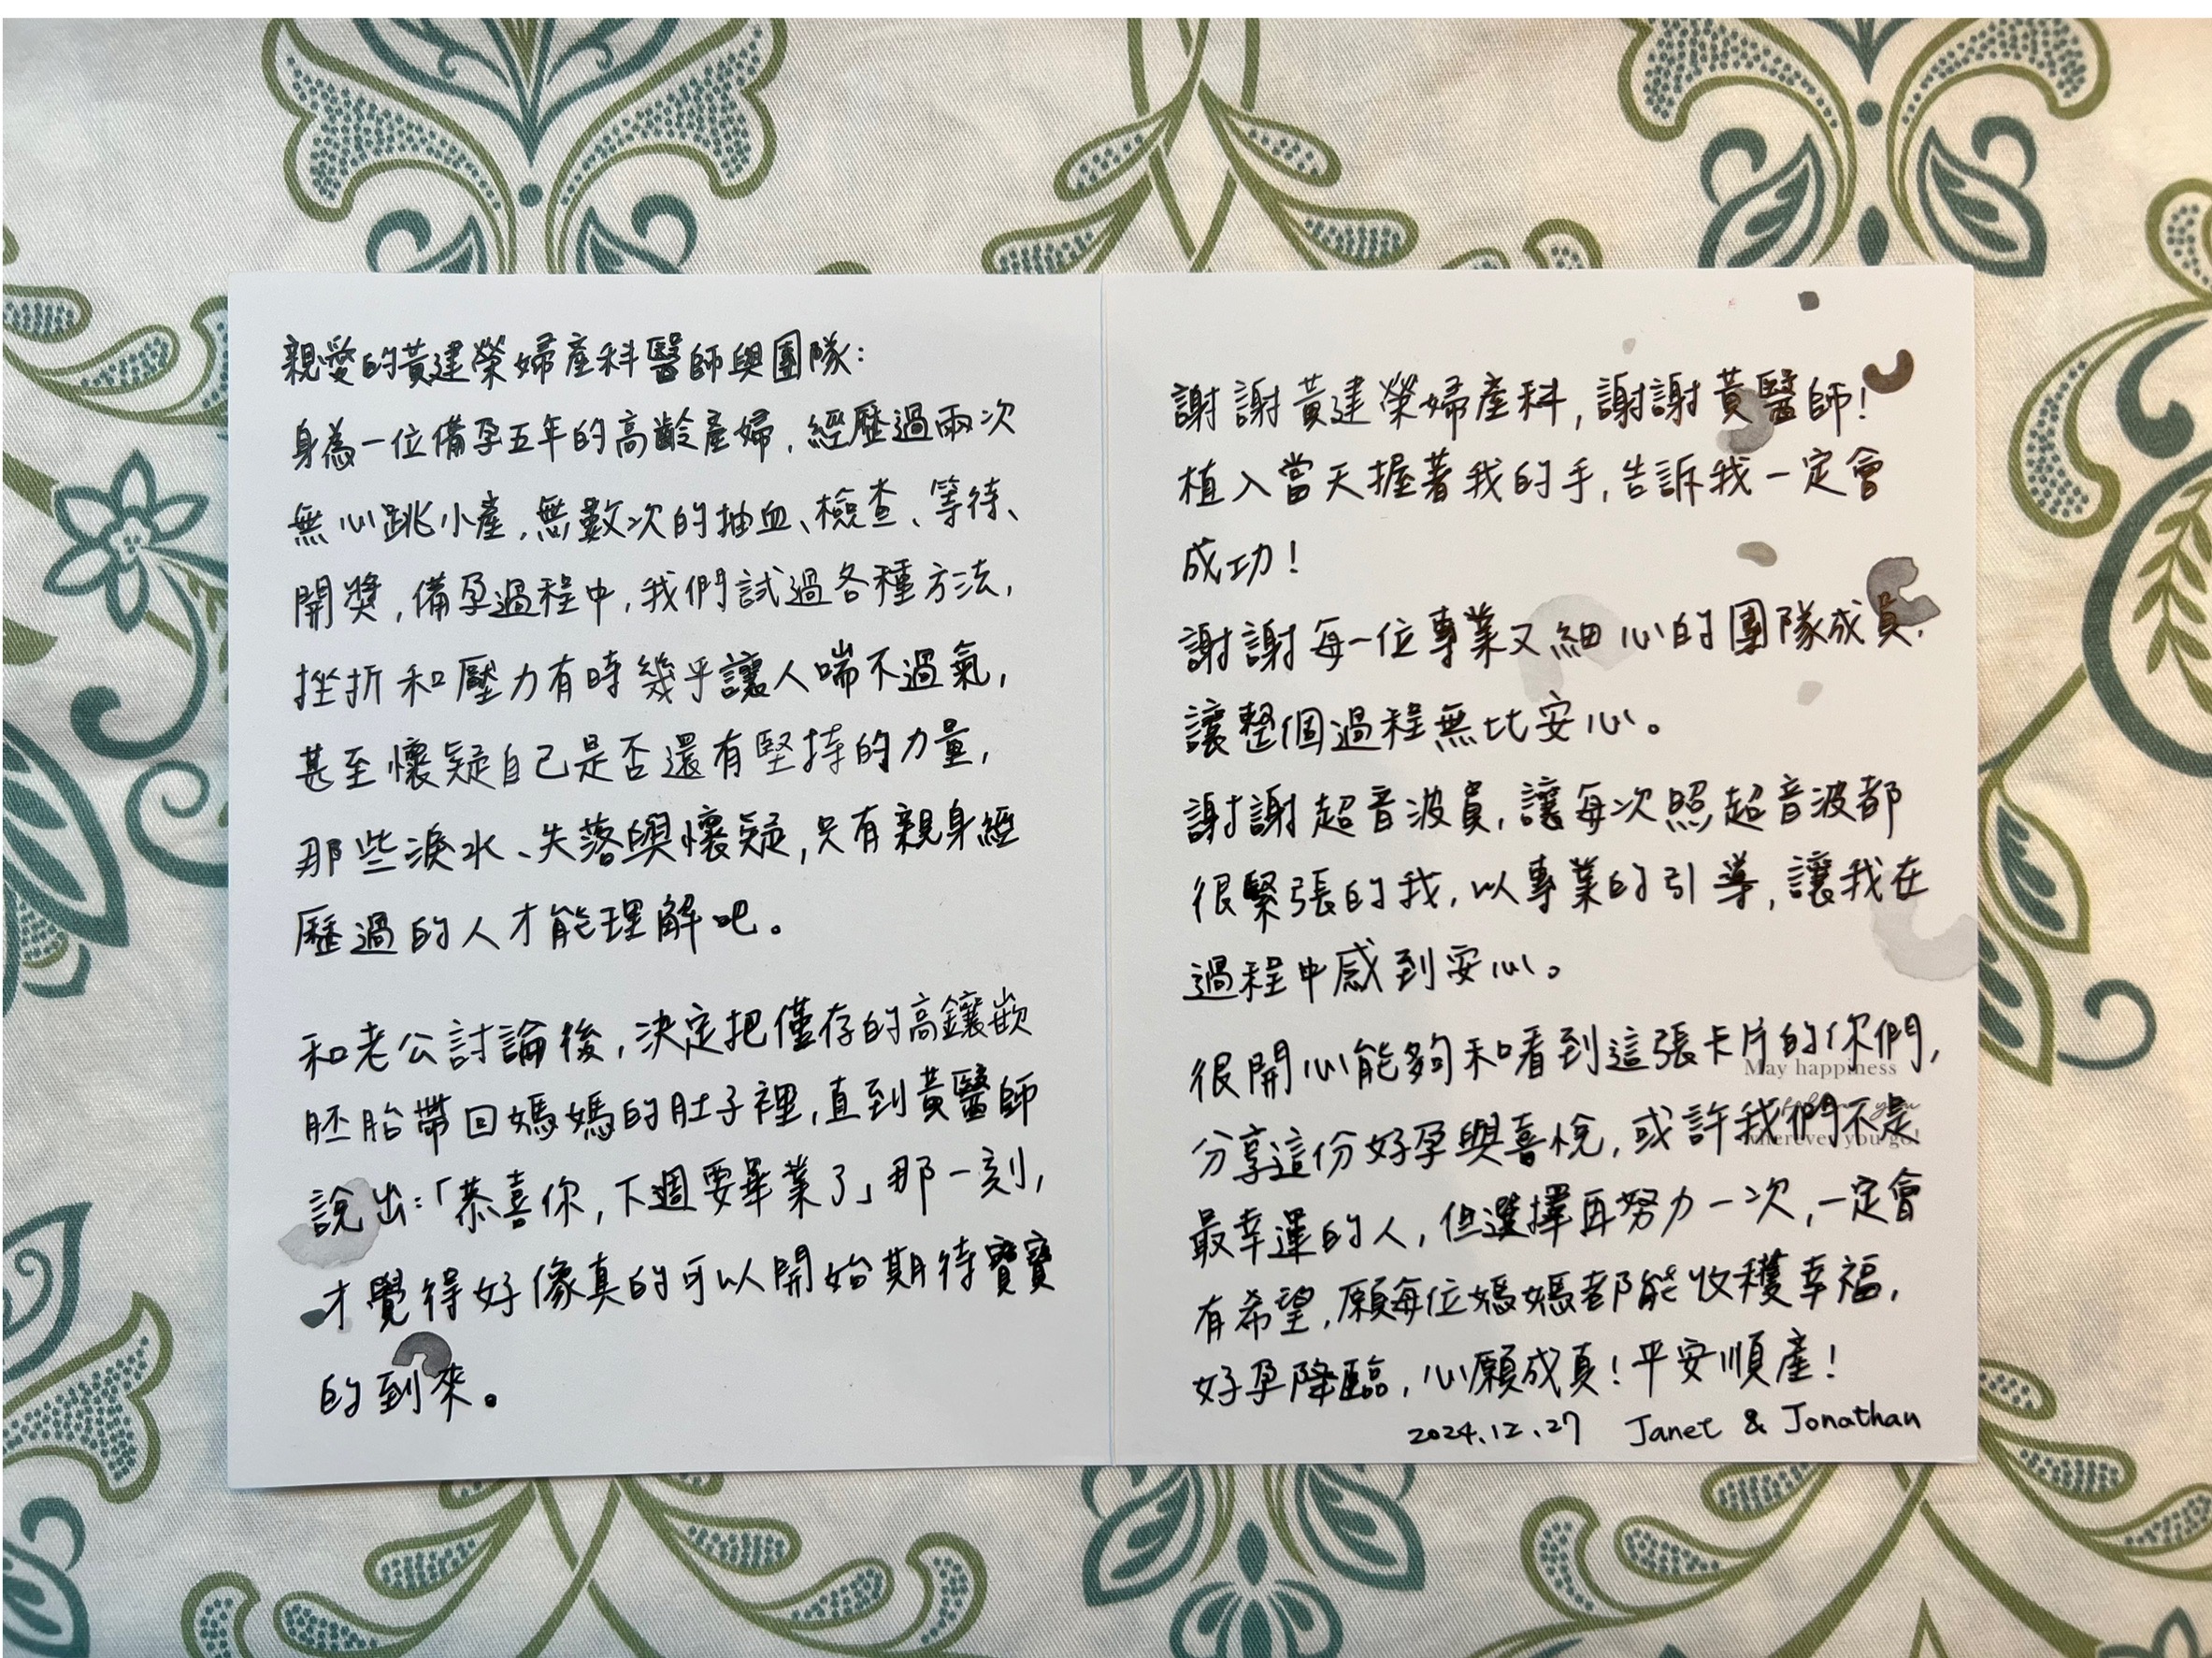 親愛的黃建榮婦產科醫師與團隊：
身為一位備孕五年的高齡產婦，經歷過兩次
無心跳小產，無數次的抽血、檢查、等待、
開獎，備孕過程中，我們試過各種方法，
挫折和壓力有時幾乎讓人喘不過氣，
甚至懷疑自己是否還有堅持的力量，
那些淚水、失落與懷疑，只有親身經
歷過的人才能理解吧。
和老公討論後，決定把僅存的高鑲嵌
胚胎帶回媽媽的肚子裡，直到黃醫師
說出：「恭喜你，下週要畢業了」那一刻，
才覺得好像真的可以開始期待寶寶
的到來。
謝謝黃建榮婦產科，謝謝黃醫師！
植入當天握著我的手，告訴我一定會
成功！
謝謝每一位專業又細心的團隊成員，
讓整個過程無比安心。
謝謝超音波員，讓每次照超音波都
很緊張的我，以專業的引導，讓我在
過程中感到安心。
很開心能夠和看到這張卡片的你們，
May happiness
分享這份好孕與喜悅，或許我們不是
wherever you go!
最幸運的人，但選擇再努力一次，一定會
有希望，願每位媽媽都能收穫幸福，
好孕降臨，心願成真！平安順產！
2024.12.27 Janet & Jonathan